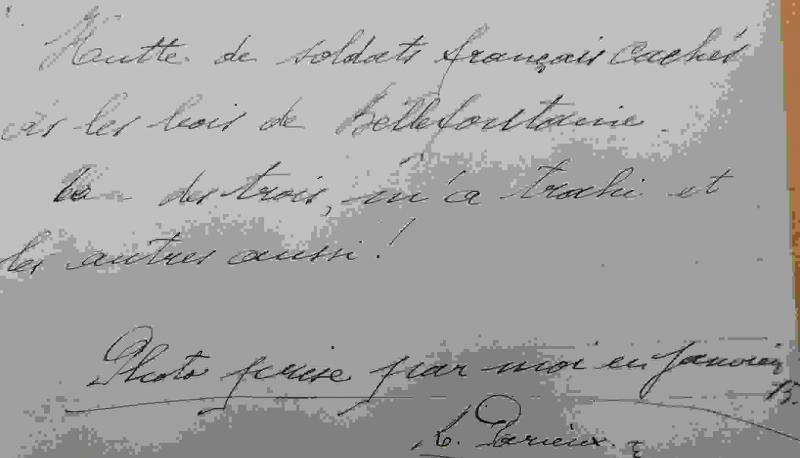 Hutte de soldats français cachés
ds les bois de Bellefontaine.
des trois, m'a trahi et
les autres aussi!
Photo prise par moi en Janvier
15.
Parieux.